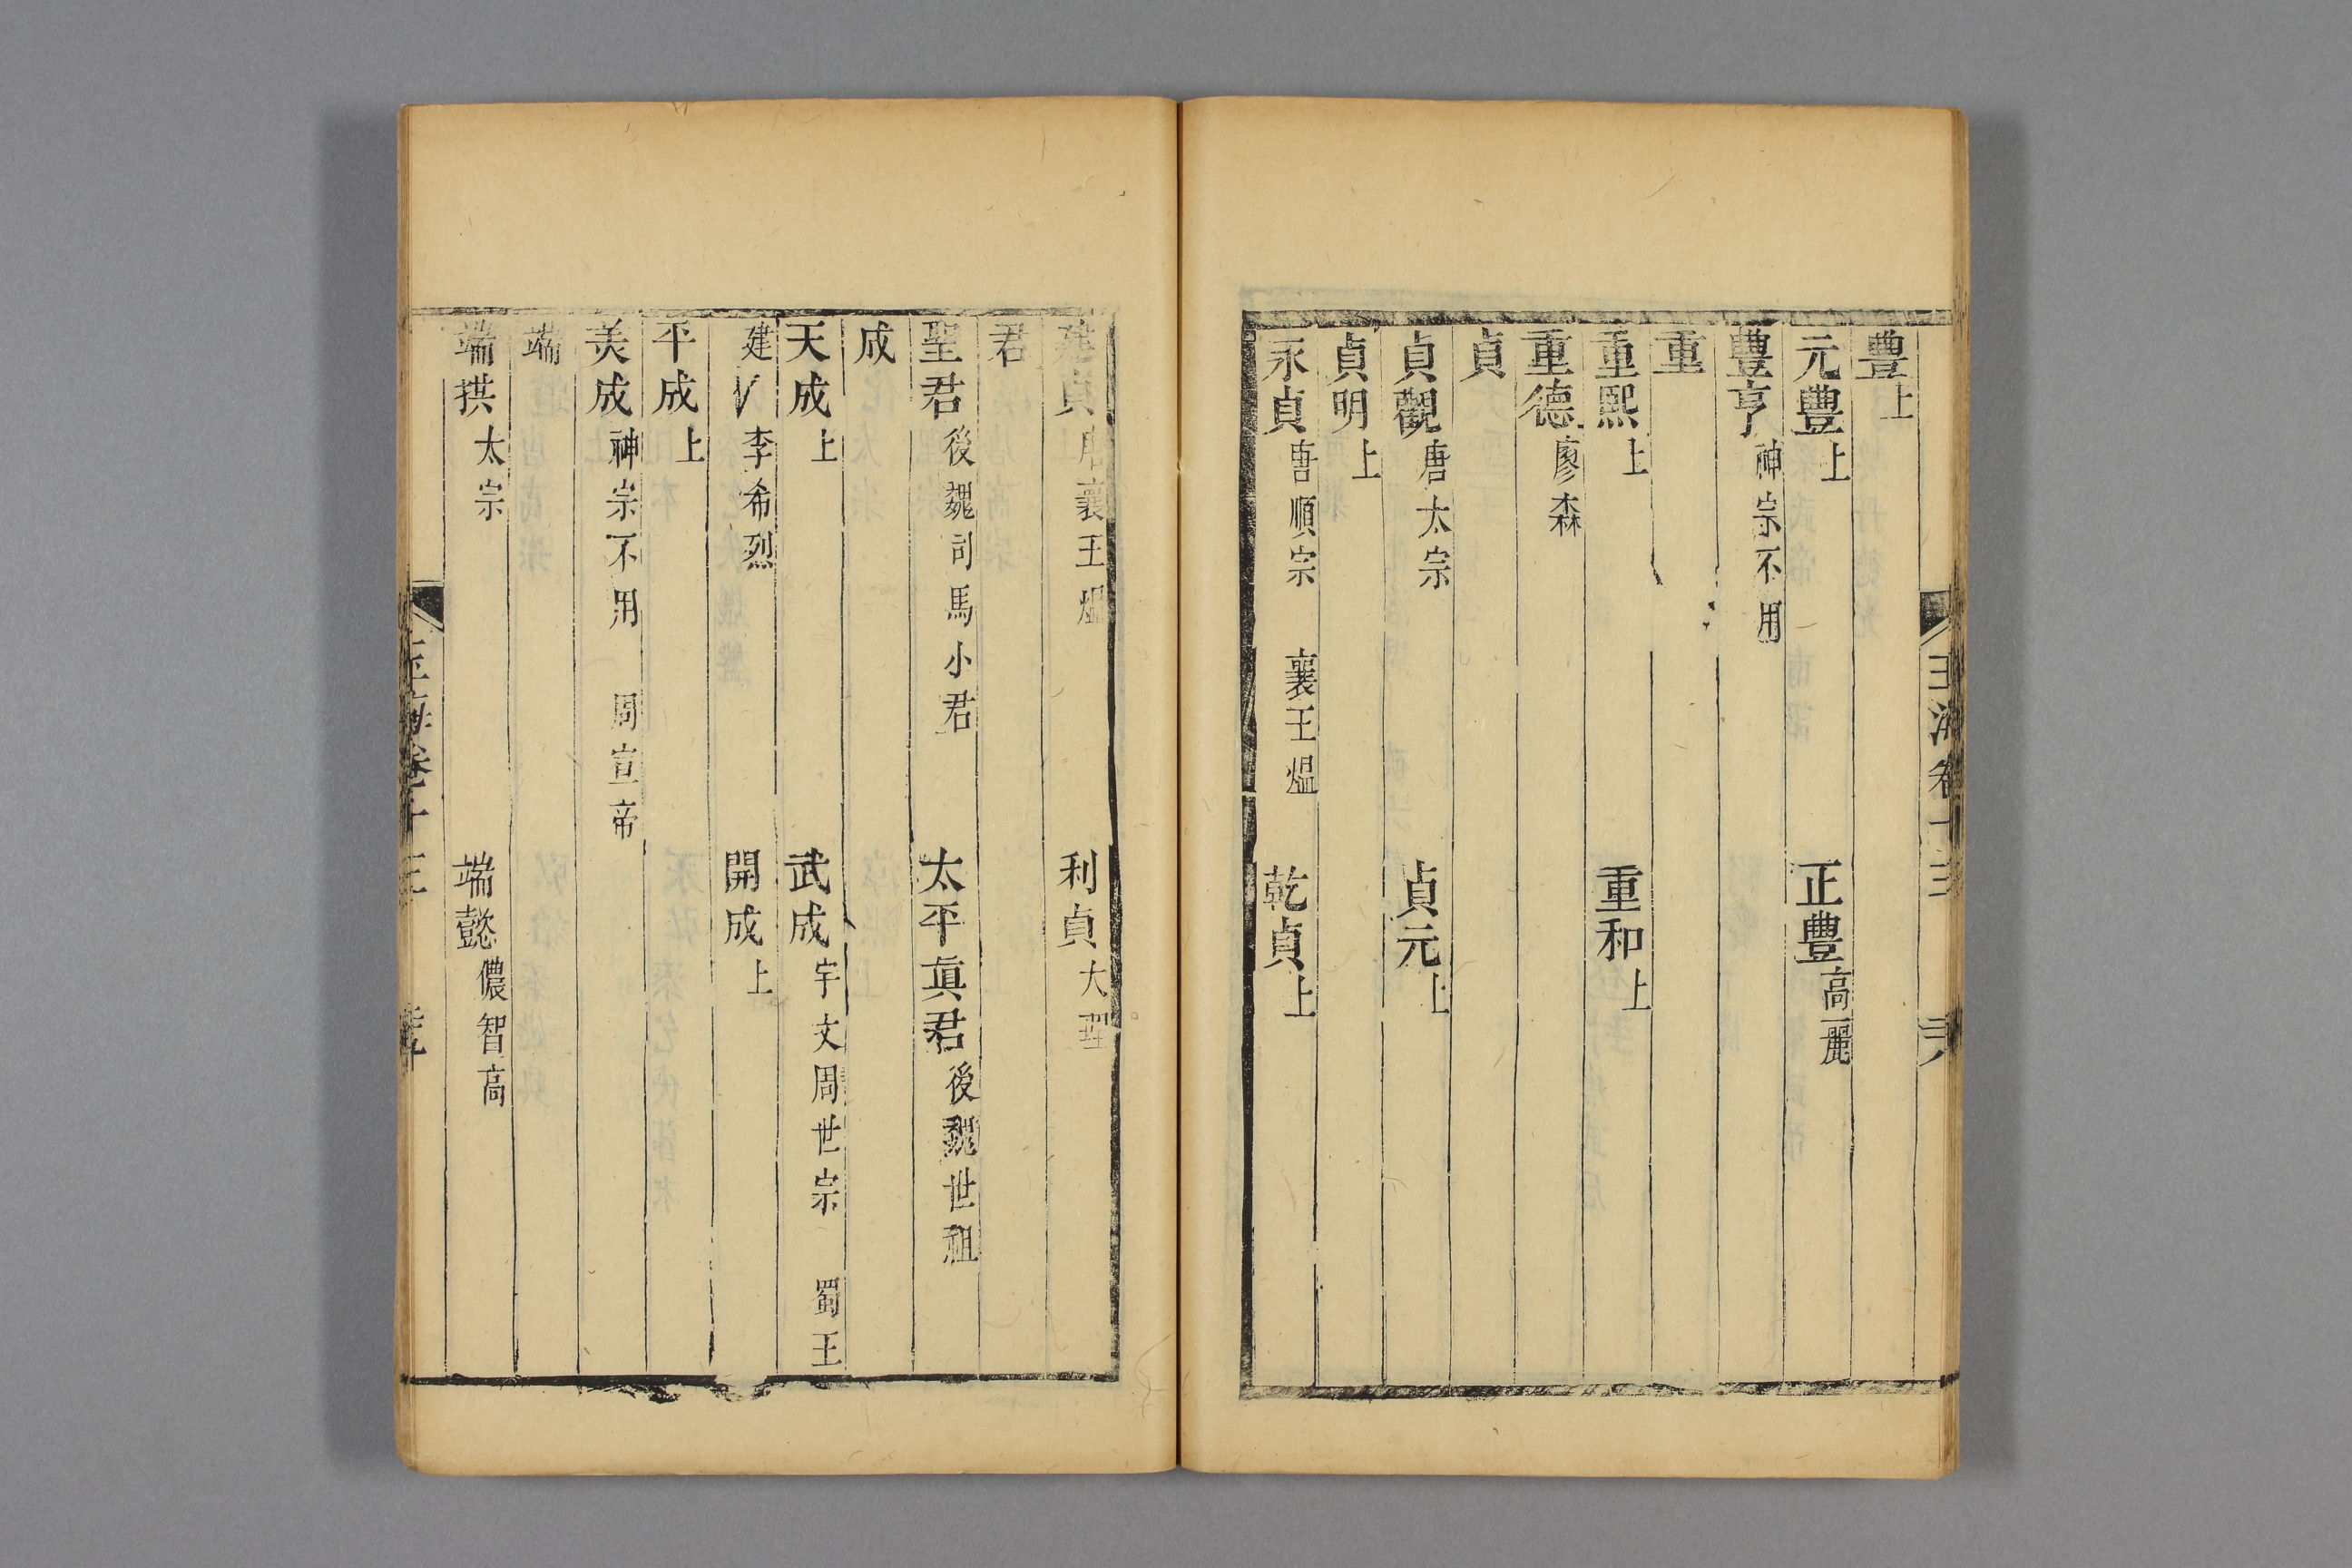 豊上
元豊上 正豊高麗
豊亨神宗不用
重
重熙上 重和上
重德廖森
貞
貞觀唐太宗 貞元上
貞明上
永貞唐順宗 襄王煴 乾貞上
建貞唐襄王煴 利貞大理
君
聖君後魏司馬小君 太平眞君後魏世祖
成
天成上 武成宇文周世宗 蜀王
建 李希烈 開成上
平成上
美成神宗不用 周宣帝
端
端拱太宗 端懿儂智高
玉海卷十三